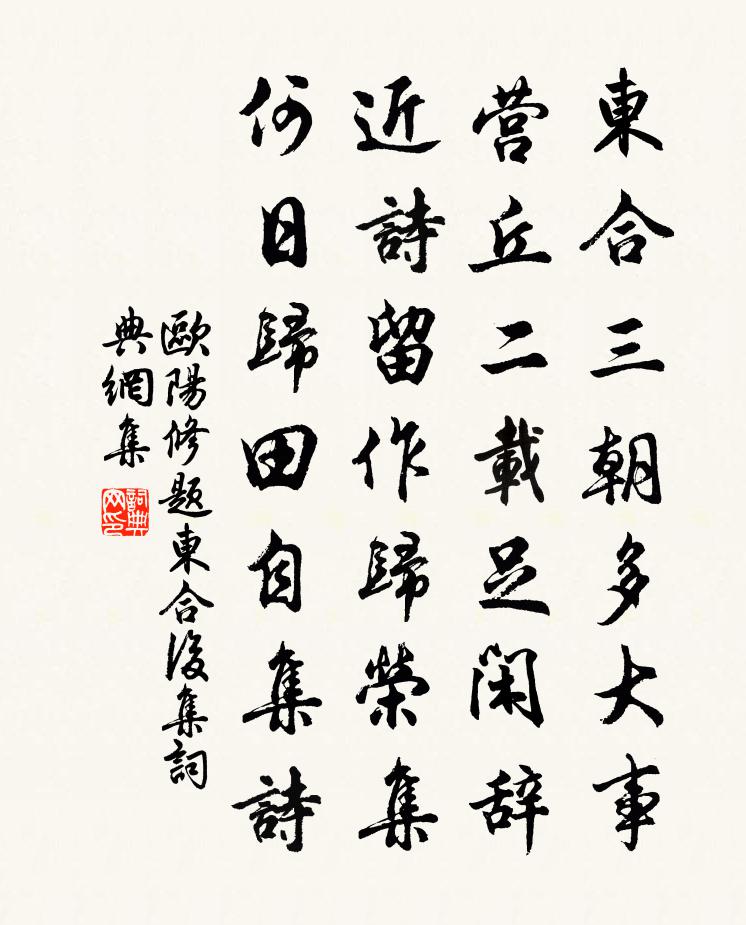 東合三朝多大事
营丘二載足閑辞
近詩留作歸榮集
何日歸田自集詩
歐陽修題東合後集詞
典網集
詞典
网印